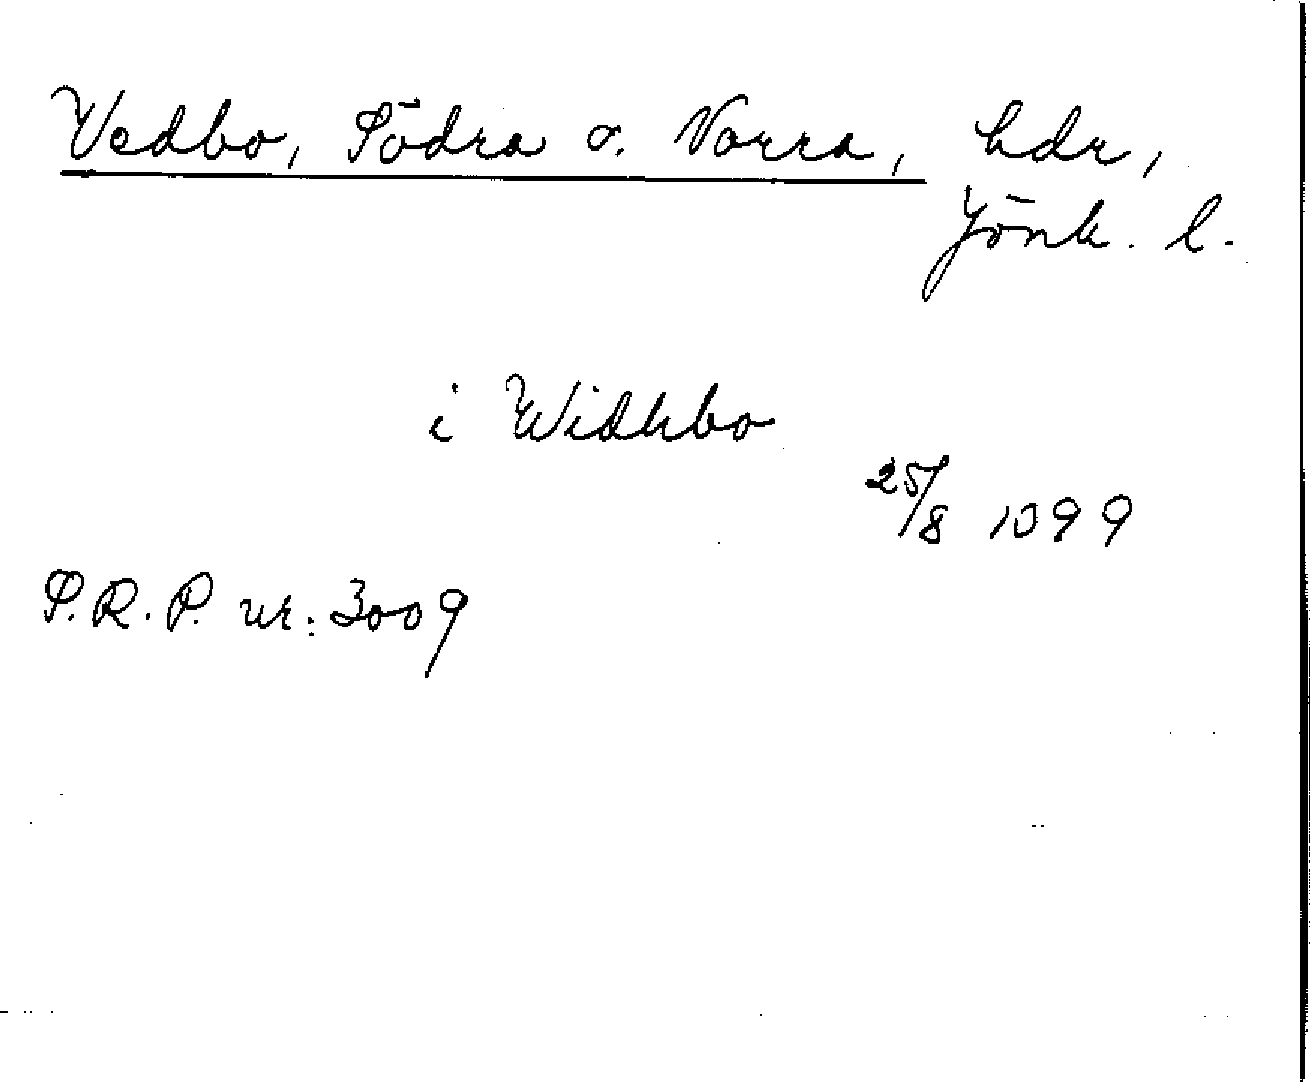 Vedbo, Södra o. Norra, hdr,
Jönk. l.
i Widhbo
25/8 1399
S.R.P. nr: 3009